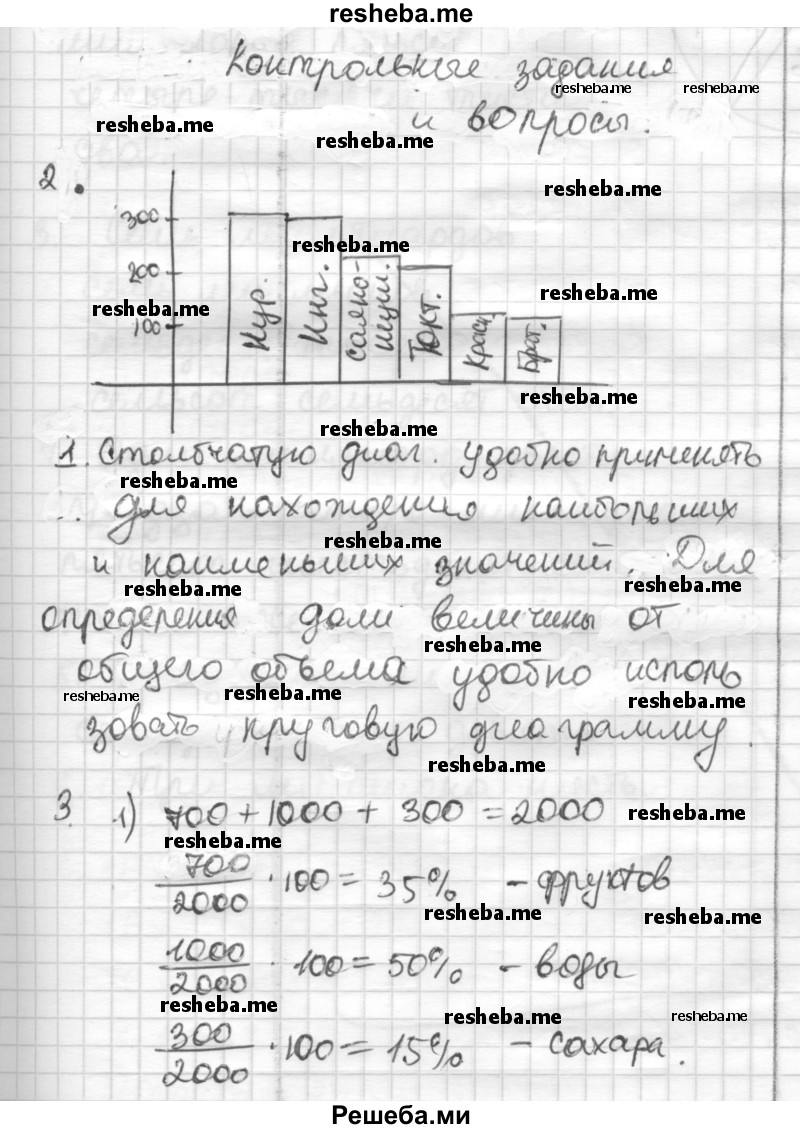 resheba.me
Контрольные задания
resheba.me resheba.me
resheba.me и вопросы.
resheba.me
2.
resheba.me
300
resheba.me
200
resheba.me
resheba.me
100
Нур. Инг. Саяно-Шуш. Токт. Красн. Брат.
resheba.me
resheba.me
1. Столбчатую диаг. удобно применять
resheba.me
для нахождения наибольших
resheba.me
и наименьших значений. Для
resheba.me resheba.me
определения доли величины от
resheba.me
общего объема удобно исполь
resheba.me resheba.me resheba.me
зовать круговую диаграмму.
resheba.me
3 1) 700 + 1000 + 300 = 2000 resheba.me
resheba.me
700/2000 · 100 = 35% - фруктов
resheba.me resheba.me
1000/2000 · 100 = 50% - воды
resheba.me resheba.me resheba.me
300/2000 · 100 = 15% - сахара.
Решеба.ми